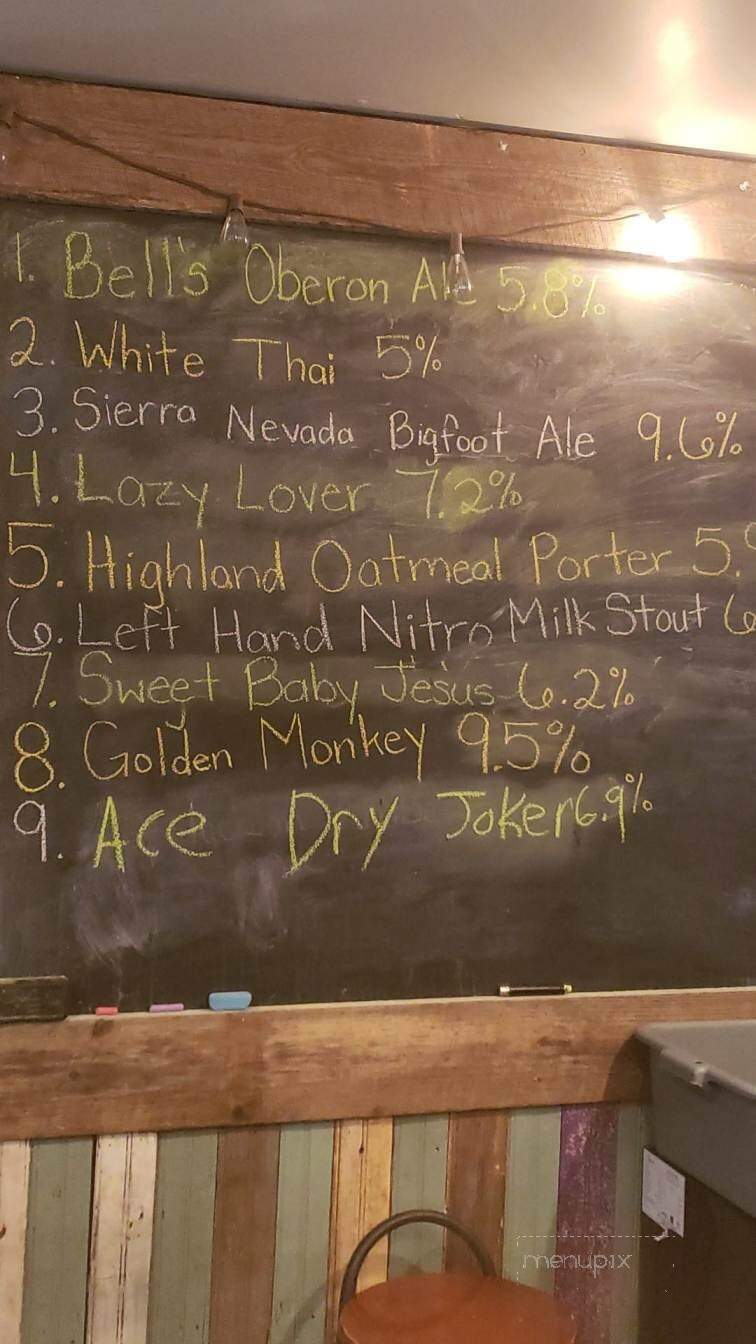 1. Bell's Oberon Ale 5.8%
2. White Thai 5%
3. Sierra Nevada Bigfoot Ale 9.6%
4. Lazy Lover 7.2%
5. Highland Oatmeal Porter 5.
6. Left Hand Nitro Milk Stout 6
7. Sweet Baby Jesus 6.2%
8. Golden Monkey 9.5%
9. Ace Dry Joker 6.9%
menupix